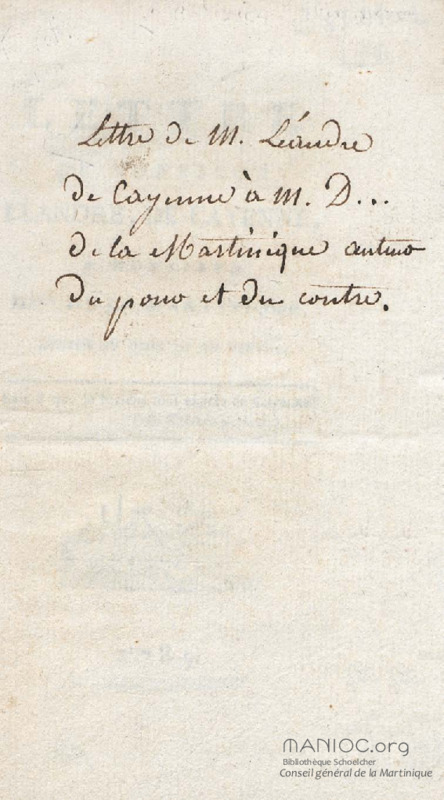 Lettre de M. Léandre
de Cayenne à M. D...
de la Martinique auteur
du pour et du contre.
MANIOC.org
Bibliothèque Schoelcher
Conseil général de la Martinique